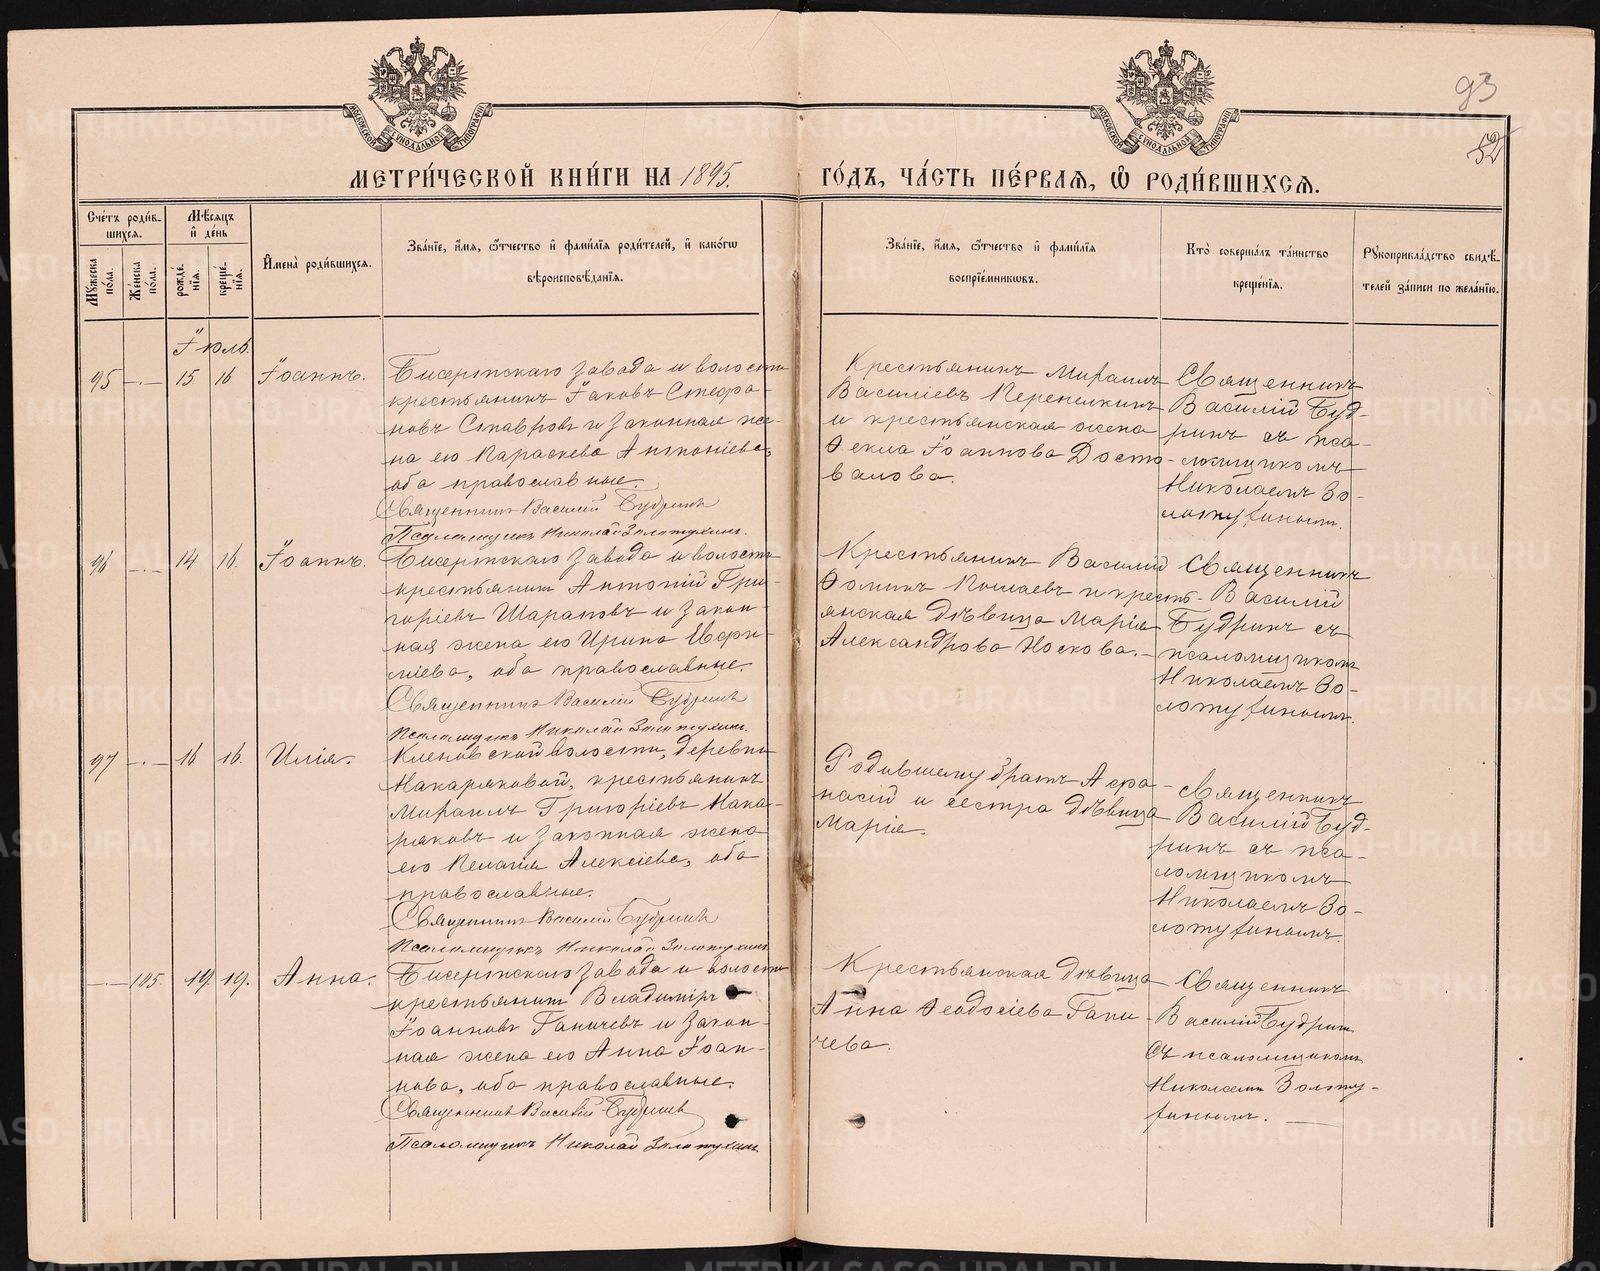 93
52
МЕТРИ́ЧЕСКОЙ КНИ́ГИ НА 1895. ГО́ДЪ, ЧА́СТЬ ПЕ́РВАЯ, Ѿ РОДИ́ВШИХСЯ.
Сче́тъ роди́в-
шихся.
Му́жеска по́ла.
Же́нска по́ла.
Мѣ́сяцъ и҆ де́нь
рожде́-
нїѧ.
креще́-
нїѧ.
И҆мена̀ роди́вшихся.
Зва́нїе, и҆́мя, ѻ҆́тчество и҆ фами́лїя роди́телей, и҆ како́гѡ
вѣроисповѣ́данїя.
Зва́нїе, и҆́мя, ѻ҆́тчество и҆ фами́лїя
воспрїе́мникѡвъ.
Кто̀ соверша́лъ та́инство
креще́нїя.
Рꙋкоприкла́дство свидѣ́-
телей за́писи по жела́нїю.
Іюль.
95 -.- 15 16 Іоаннъ.
Бисертскаго завода и волости
крестьянинъ Іаковъ Стефа-
новъ Ставровъ и законная же-
на его Параскева Антоніева,
оба православные.
Священникъ Василій Будринъ
Псаломщикъ Николай Золотухинъ.
Крестьянинъ Михаилъ
Василіевъ Перепелкинъ
и крестьянская жена
Ѳекла Іоаннова Досто-
валова.
Священникъ
Василій Буд-
ринъ съ пса-
ломщикомъ
Николаемъ Зо-
лотухинымъ.
96 -.- 14 16. Іоаннъ.
Бисертскаго завода и волости
крестьянинъ Антоній Гри-
горіевъ Шараповъ и закон-
ная жена его Ирина
оба православные.
Священникъ Василій Будринъ
Псаломщикъ Николай Золотухинъ.
Крестьянинъ Василій
Ѳоминъ и кресть-
янская дѣвица Марія
Александрова Носкова.-
Священникъ
Василій
Будринъ съ
псаломщикомъ
Николаемъ Зо-
лотухинымъ.
97 -.- 16 16. Илія.
Кленовской волости, деревни
Накаряковой, крестьянинъ
Михаилъ Григоріевъ Нака-
ряковъ и законная жена
его Пелагія Алексіева, оба
православные.
Священникъ Василій Будринъ
Псаломщикъ Николай Золотухинъ.
Родившему братъ Аѳа-
насій и сестра дѣвица
Марія.
Священникъ
Василій Буд-
ринъ съ пса-
ломщикомъ
Николаемъ Зо-
лотухинымъ.
-.- 105 19. 19. Анна.
Бисертскаго завода и волости
крестьянинъ Владиміръ
Іоанновъ Ганичевъ и закон-
ная жена его Анна Іоан-
нова, оба православные.
Священникъ Василій Будринъ
Псаломщикъ Николай Золотухинъ.
Крестьянская дѣвица
Анна Ѳеодосіева Гани-
чева.
Священникъ
Василій Будринъ
съ псаломщикомъ
Николаемъ Золоту-
хинымъ.
METRIKI.GASO-URAL.RU